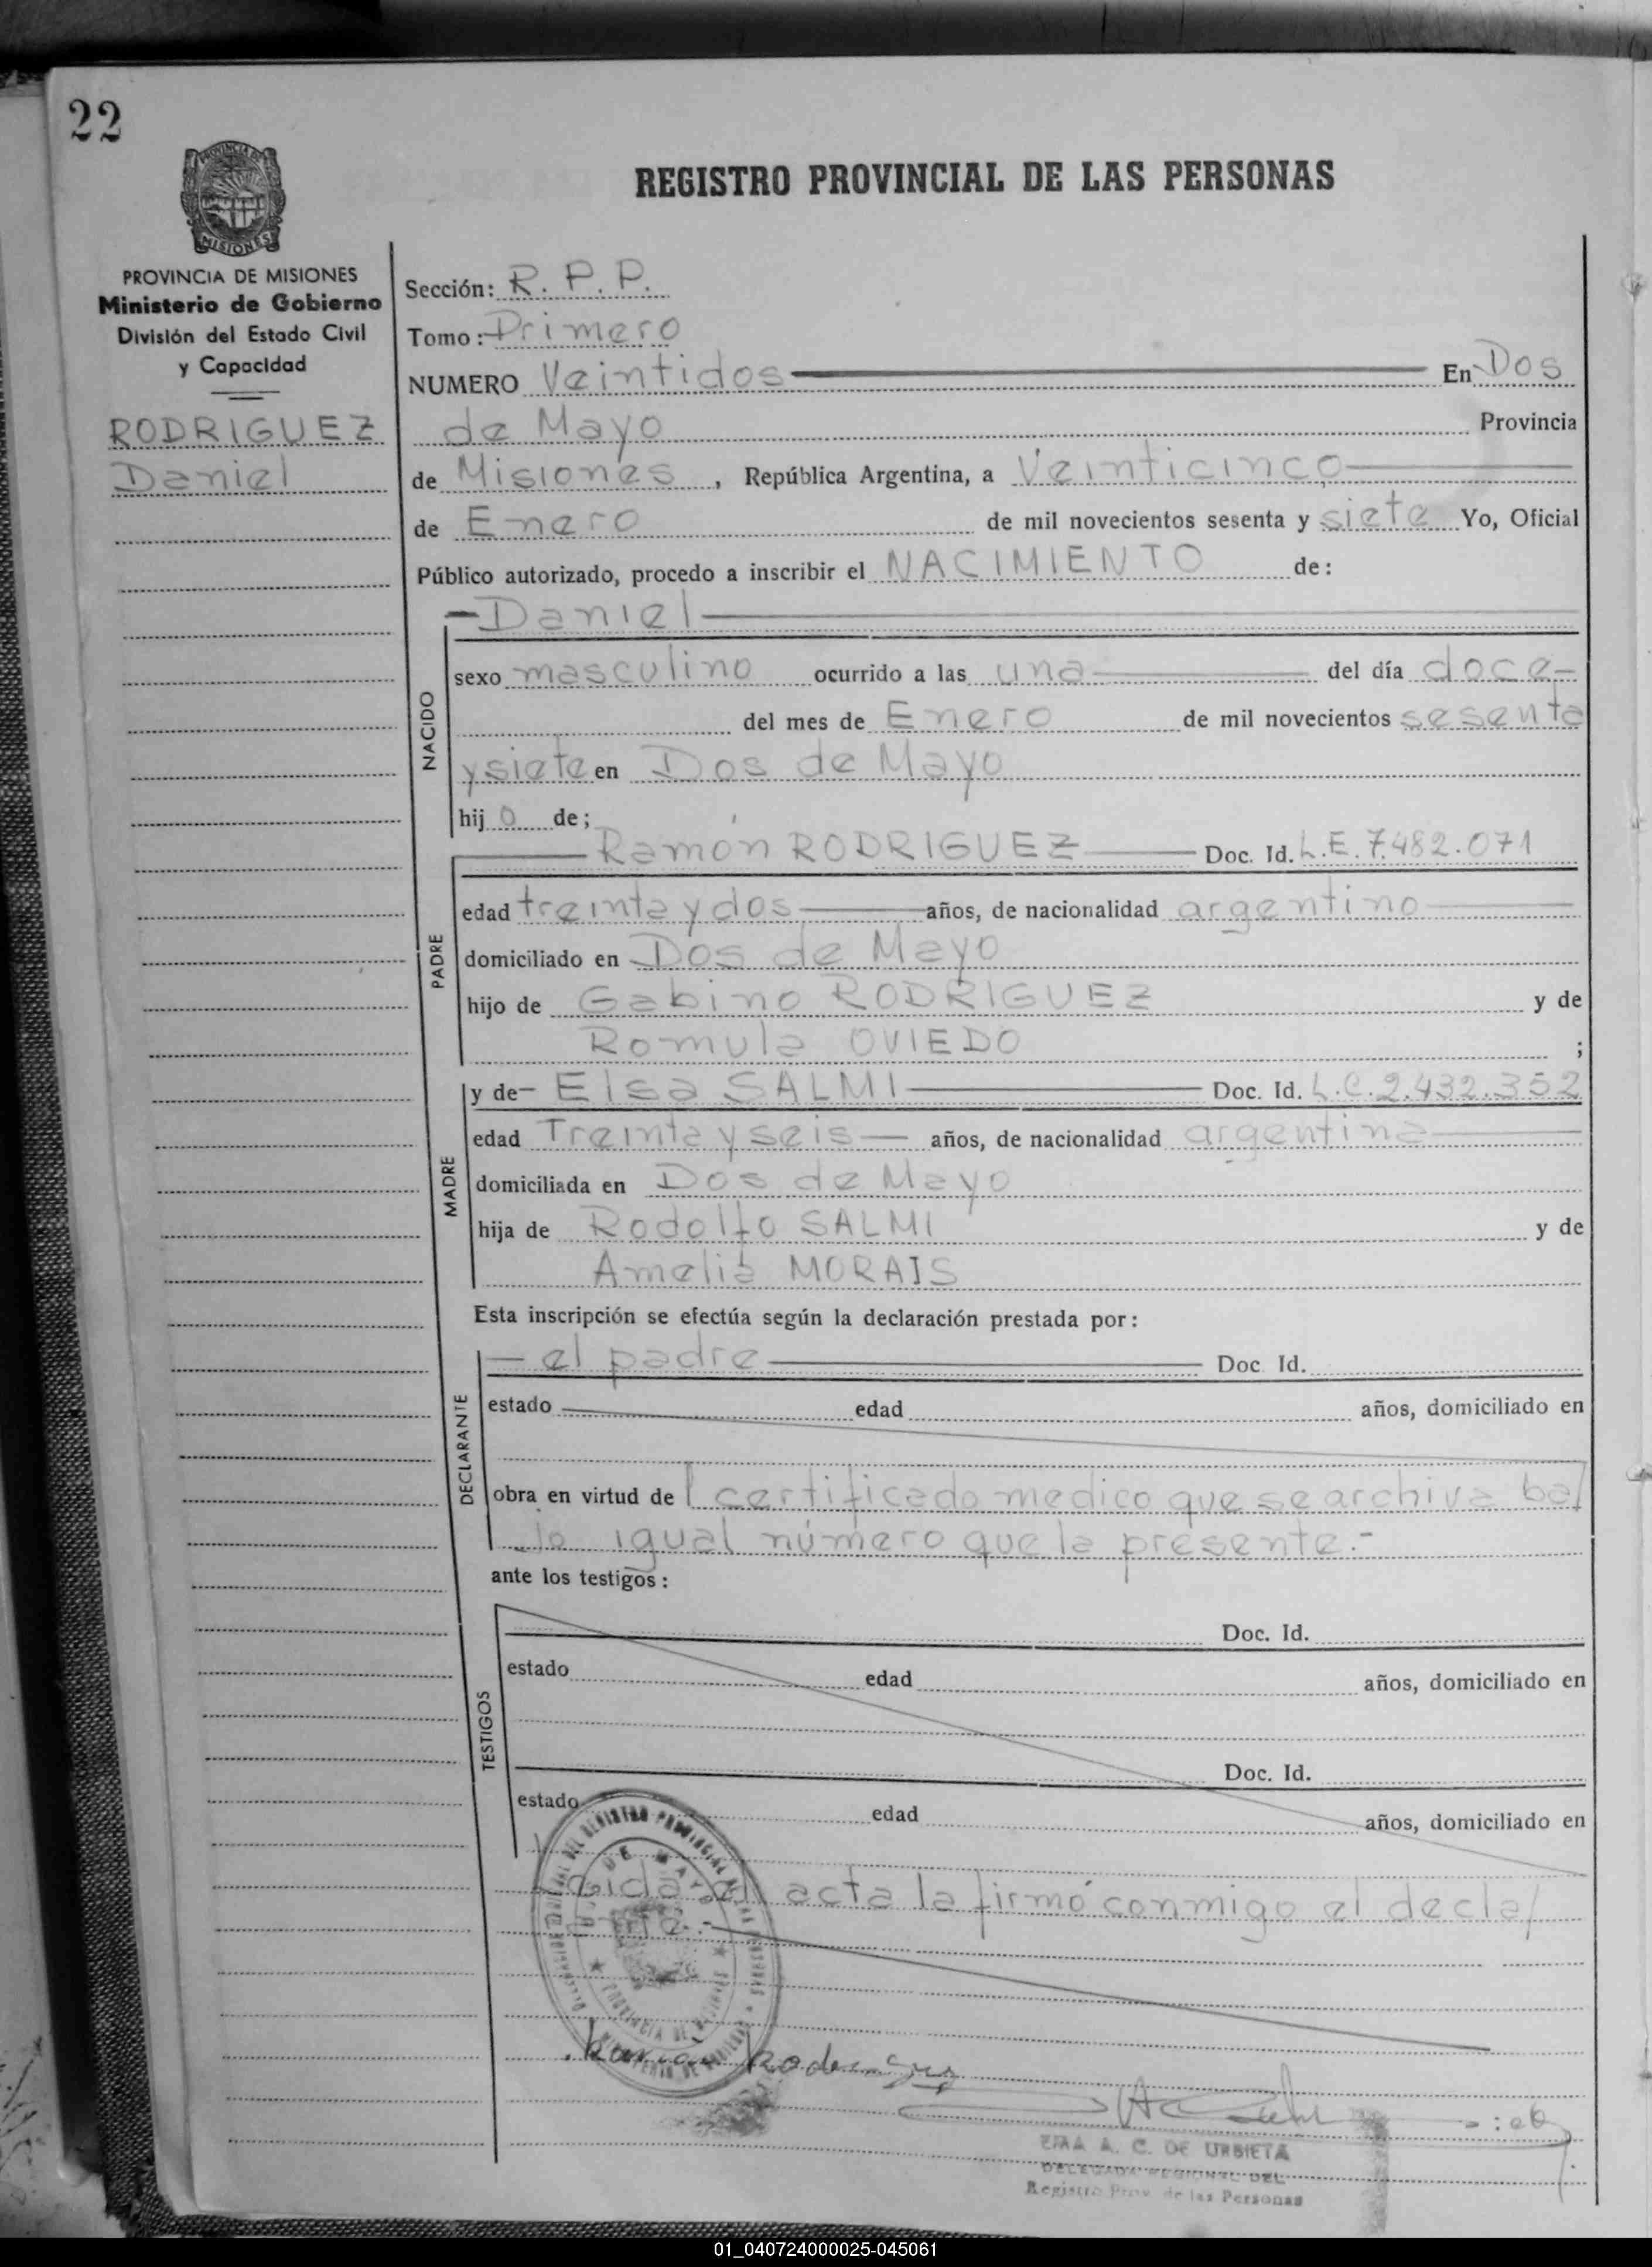 22
REGISTRO PROVINCIAL DE LAS PERSONAS
PROVINCIA DE MISIONES
Ministerio de Gobierno
División del Estado Civil
y Capacidad
RODRIGUEZ
Daniel
Sección: R. P. P.
Tomo: Primero
NUMERO Veintidos En Dos
de Mayo Provincia
de Misiones, República Argentina, a Veinticinco
de Enero de mil novecientos sesenta y siete Yo, Oficial
Público autorizado, procedo a inscribir el NACIMIENTO de:
Daniel
NACIDO
sexo masculino ocurrido a las una del día doce
del mes de Enero de mil novecientos sesenta
y siete en Dos de Mayo
hijo de;
Ramón RODRIGUEZ Doc. Id. L.E. 7.482.071
PADRE
edad treinta y dos años, de nacionalidad argentino
domiciliado en Dos de Mayo
hijo de Gabino RODRIGUEZ y de
Romula OVIEDO ;
y de Elsa SALMI Doc. Id. L.C. 2.432.352
MADRE
edad Treinta y seis años, de nacionalidad argentina
domiciliada en Dos de Mayo
hija de Rodolfo SALMI y de
Amelia MORAIS
Esta inscripción se efectúa según la declaración prestada por:
el padre Doc. Id.
DECLARANTE
estado edad años, domiciliado en
obra en virtud del certificado medico que se archiva ba/
jo igual número que la presente.-
ante los testigos:
TESTIGOS
Doc. Id.
estado edad años, domiciliado en
Doc. Id.
estado edad años, domiciliado en
acta la firmó conmigo el decla/
Ramón Rodriguez
EMA A. C. DE URBIETA
DELEGADA REGIONAL DEL
Registro Prov. de las Personas
01_040724000025-045061